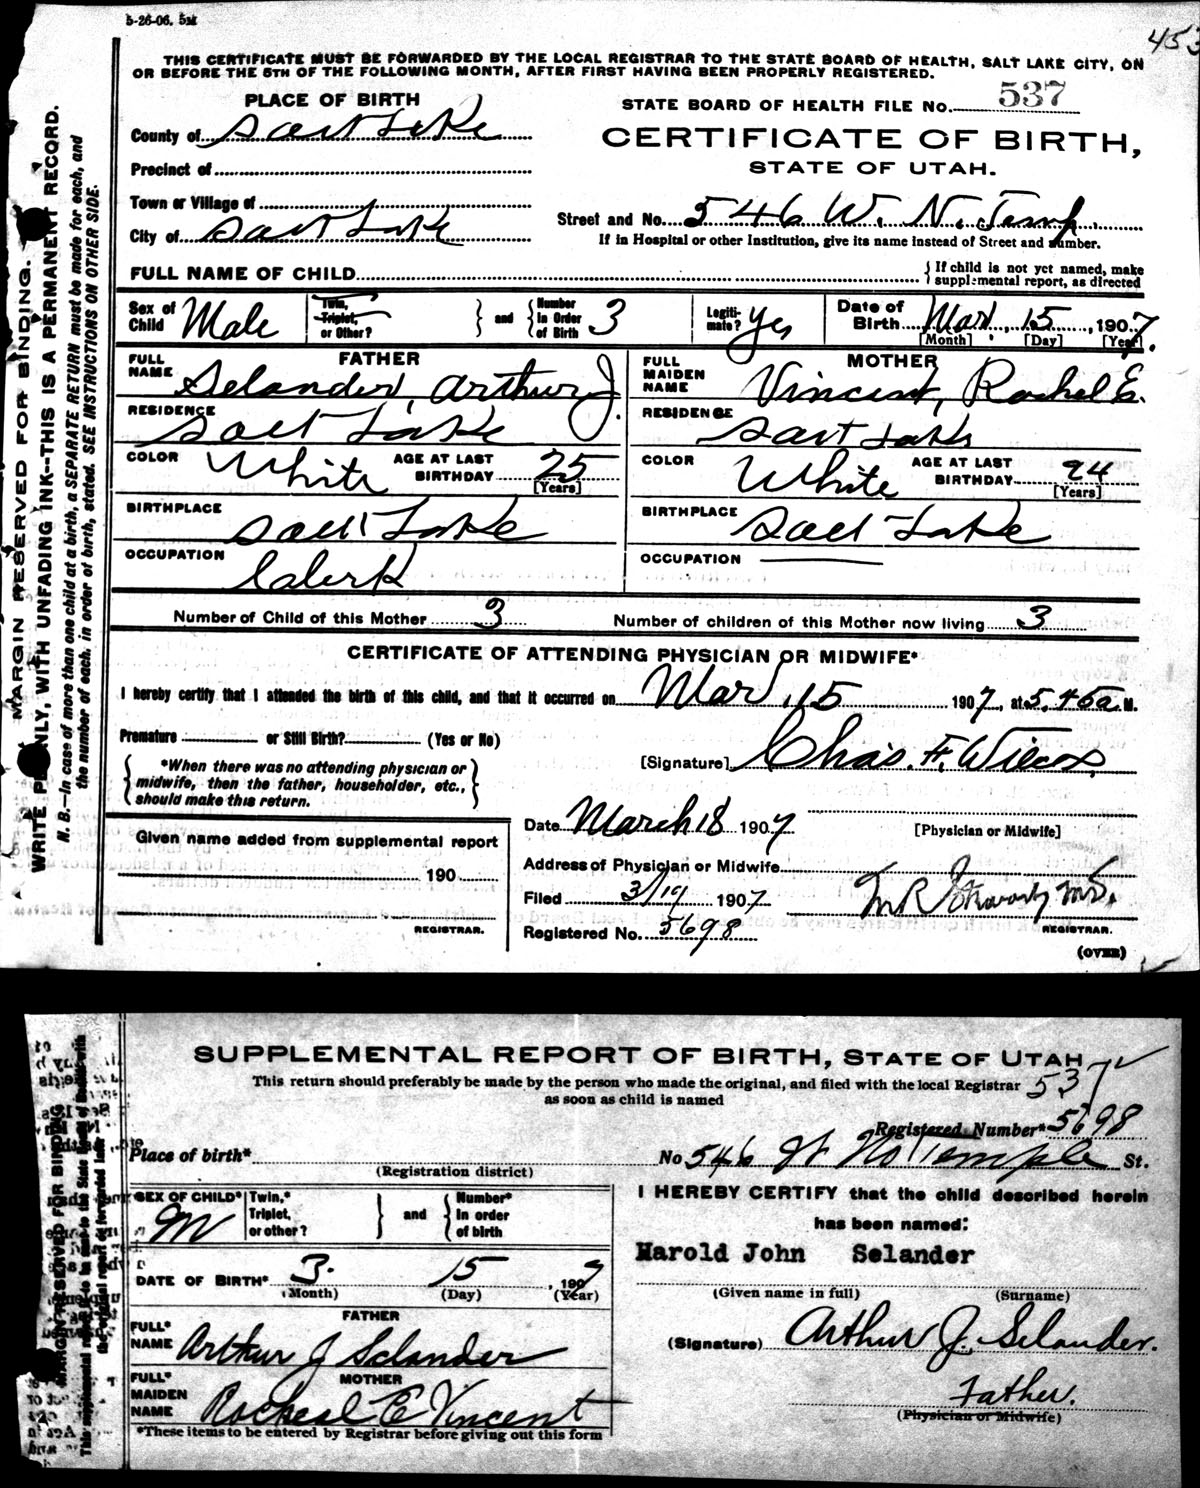 5-26-06. 5M
453
THIS CERTIFICATE MUST BE FORWARDED BY THE LOCAL REGISTRAR TO THE STATE BOARD OF HEALTH, SALT LAKE CITY, ON
OR BEFORE THE 5TH OF THE FOLLOWING MONTH, AFTER FIRST HAVING BEEN PROPERLY REGISTERED.
PLACE OF BIRTH
STATE BOARD OF HEALTH FILE No. 537
County of Salt Lake
CERTIFICATE OF BIRTH,
STATE OF UTAH.
Precinct of
Town or Village of
Street and No. 546 W. N. Temp.
City of Salt Lake
If in Hospital or other Institution, give its name instead of Street and number.
FULL NAME OF CHILD
{ If child is not yet named, make
supplemental report, as directed
Sex of Child Male
Twin, Triplet, or Other?
} and { Number In Order of Birth 3
Legitimate? Yes
Date of Birth Mar, 15, 1907.
[Month] [Day] [Year]
FATHER
FULL NAME Selander, Arthur J.
RESIDENCE Salt Lake
COLOR White AGE AT LAST BIRTHDAY 25 [Years]
BIRTHPLACE Salt Lake
OCCUPATION Clerk
MOTHER
FULL MAIDEN NAME Vincent, Rachel E.
RESIDENCE Salt Lake
COLOR White AGE AT LAST BIRTHDAY 24 [Years]
BIRTHPLACE Salt Lake
OCCUPATION
Number of Child of this Mother 3 Number of children of this Mother now living 3
CERTIFICATE OF ATTENDING PHYSICIAN OR MIDWIFE*
I hereby certify that I attended the birth of this child, and that it occurred on Mar, 15 1907, at 5.45a M.
Premature or Still Birth? (Yes or No)
[Signature] Chas. F. Wilcox,
{ *When there was no attending physician or
midwife, then the father, householder, etc.,
should make this return. }
[Physician or Midwife]
Date March 18 1907
Given name added from supplemental report
190
REGISTRAR.
Address of Physician or Midwife
Filed 3/19 1907
M.D.
REGISTRAR.
Registered No. 5698
(OVER)
MARGIN RESERVED FOR BINDING.
WRITE PLAINLY, WITH UNFADING INK--THIS IS A PERMANENT RECORD.
N. B.—In case of more than one child at a birth, a SEPARATE RETURN must be made for each, and
the number of each, in order of birth, stated. SEE INSTRUCTIONS ON OTHER SIDE.
SUPPLEMENTAL REPORT OF BIRTH, STATE OF UTAH
This return should preferably be made by the person who made the original, and filed with the local Registrar
as soon as child is named
537
Registered Number* 5698
Place of birth*
(Registration district)
No 546 W No Temple St.
SEX OF CHILD* M
Twin,* Triplet, or other?
} and { Number* In order of birth
DATE OF BIRTH* 3. 15, 1907
(Month) (Day) (Year)
FATHER
FULL* NAME Arthur J Selander
MOTHER
FULL* MAIDEN NAME Racheal E Vincent
*These items to be entered by Registrar before giving out this form
I HEREBY CERTIFY that the child described herein
has been named:
Harold John Selander
(Given name in full) (Surname)
(Signature) Arthur J. Selander.
Father.
(Physician or Midwife)
MARGIN RESERVED FOR BINDING